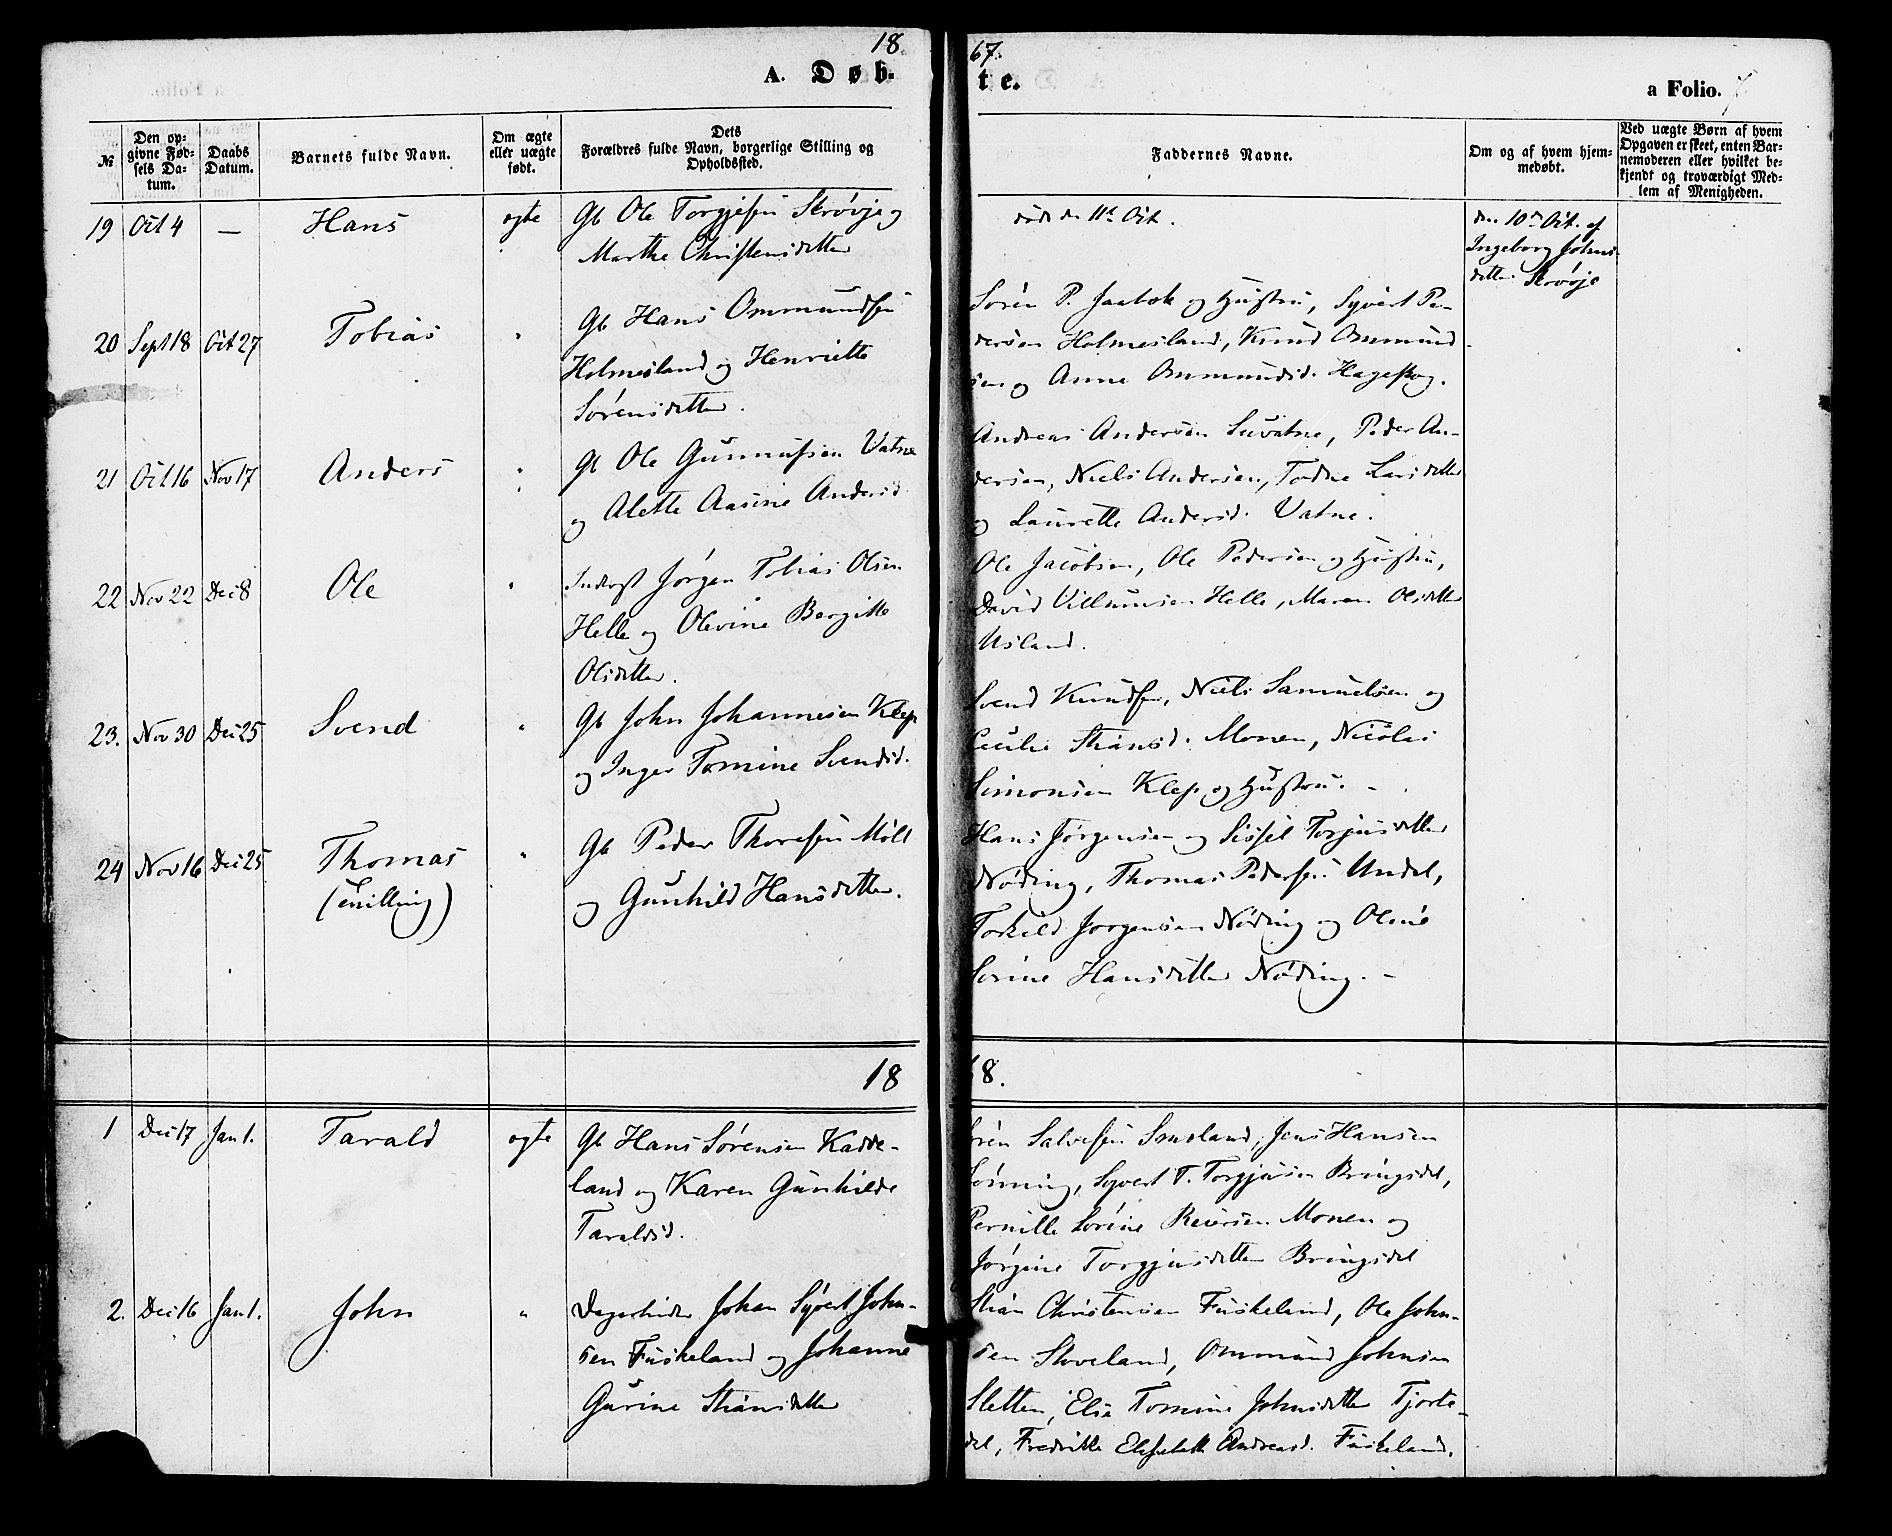 18 67.
A. Døb- te. a Folio. 7
№
Den op-
givne Fød-
sels Da-
tum.
Daabs
Datum.
Barnets fulde Navn.
Om ægte
eller uægte
født.
Dets
Forældres fulde Navn, borgerlige Stilling og
Opholdssted.
Faddernes Navne.
Om og af hvem hjem-
medøbt.
Ved uægte Børn af hvem
Opgaven er skeet, enten Bar-
nemoderen eller hvilket be-
kjendt og troværdigt Med-
lem af Menigheden.
19 Oct 4 — Hans ægte Gb Ole Torgjesen Skrøvje og
Marthe Christensdatter
død den 11te Oct.
den 10de Oct. af
Ingeborg Johns-
datter Skrøvje
20 Sept 18 Oct 27 Tobias " Gb Hans Ommundsen
Holmesland og Henriette
Sørensdatter.
Søren P. Faabek og Hustru, Syvert Pe-
dersen Holmesland, Knud Ommund-
sen og Anne Ommundsd. Hageskog.
21 Oct 16 Nov 17 Anders " Gb Ole Gunnufsen Vatne
og Alette Aasine Andersd
Andreas Andersen Suvatne, Peder An-
dersen, Niels Andersen, Todne Larsdatter
og Laurette Andersd. Vatne.
22 Nov 22 Dec 8 Ole " Inderst Jørgen Tobias Olsen
Helle og Olevine Bergitte
Olsdatter.
Ole Jacobsen, Ole Pedersen og Hustru,
David Villumsen Helle, Maren Olsdatter
Usland.
23. Nov 30 Dec 25 Svend " Gb John Johannesen Klep
og Inger Tomine Svendsd.
Svend Knudsen, Niels Samuelsen og
Cecilie Stiansd. Monen, Nicolai
Simonsen Klep og Hustru. -
24 Nov 16 Dec 25 Thomas " Gb Peder Thoresen Møll
(tvilling) og Gunhild Hansdatter.
Hans Jørgensen og Sissel Torjusdatter
Nøding, Thomas Pedersen Undal,
Torkild Jørgensen Nøding og Oline
Serine Hansdatter Nøding. -
18 68.
1 Dec 17 Jan 1. Tarald ægte Gb Hans Sørensen Kadde-
land og Karen Gunhilde
Taraldsd.
Søren Salvesen Smaland, Jens Hansen
Lønning, Syvert T. Torgjusen Bringsdal,
Pernille Serine Reiersen Monen og
Jørgine Torgjusdatter Bringsdal
2. Dec 16 Jan 1. John " Dagarbeider Johan Syvert John-
sen Fuskeland og Johanne
Gurine Stiansdatter
Stian Christensen Fuskeland, Ole John-
sen Skoveland, Ommund Johnsen
Sletten, Elie Tomine Johnsdatter Tjorte-
dal, Fredrikke Elisabeth Andreasd. Fuskeland.